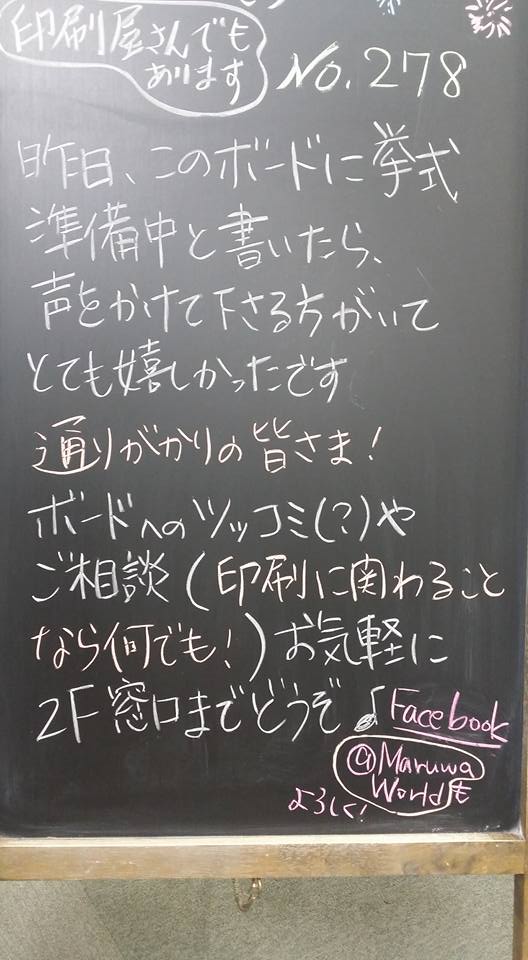 印刷屋さんでも
あります
No.278
昨日、このボードに挙式
準備中と書いたら、
声をかけて下さる方がいて
とても嬉しかったです
通りがかりの皆さま!
ボードへのツッコミ(?)や
ご相談(印刷に関わること
なら何でも!)お気軽に
2F窓口までどうぞ♪
Facebook
@Maruwa
Worldも
よろしく!